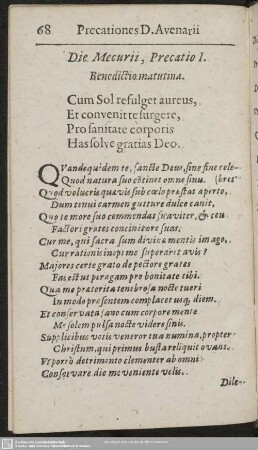 68 Precationes D. Avenarii
Die Mecurii, Precatio I.
Benedictio matutina.
Cum Sol refulget aureus,
Et convenit te surgere,
Pro sanitate corporis
Has solve gratias Deo.
QVandoquidem te, sancte Deus, sine fine cele-
Quod natura suo cōtinet omne sinu. (bret
Quod volucris quævis sub cœlo præstat aperto,
Dum tenui carmen gutture dulce canit,
Quo te more suo commendat suaviter, & ceu
Factori grates concinit ore suas,
Cur me, qui sacra sum divinæ mentis imago,
Cur rationis inops me superaret avis?
Majores certe grato de pectore grates
Fas est ut peragam pro bonitate tibi.
Qua me præterita tenebrosa nocte tueri
In modo præsentem complacet usq; diem.
Et conservata sano cum corpore mente
Me solem pulsa nocte videre sinis.
Supplicibus votis veneror tua numina, propter
Christum, qui primus busta reliquit ovans.
Vt porrò detrimento clementer ab omni
Conservare die me veniente velis.
Dile-